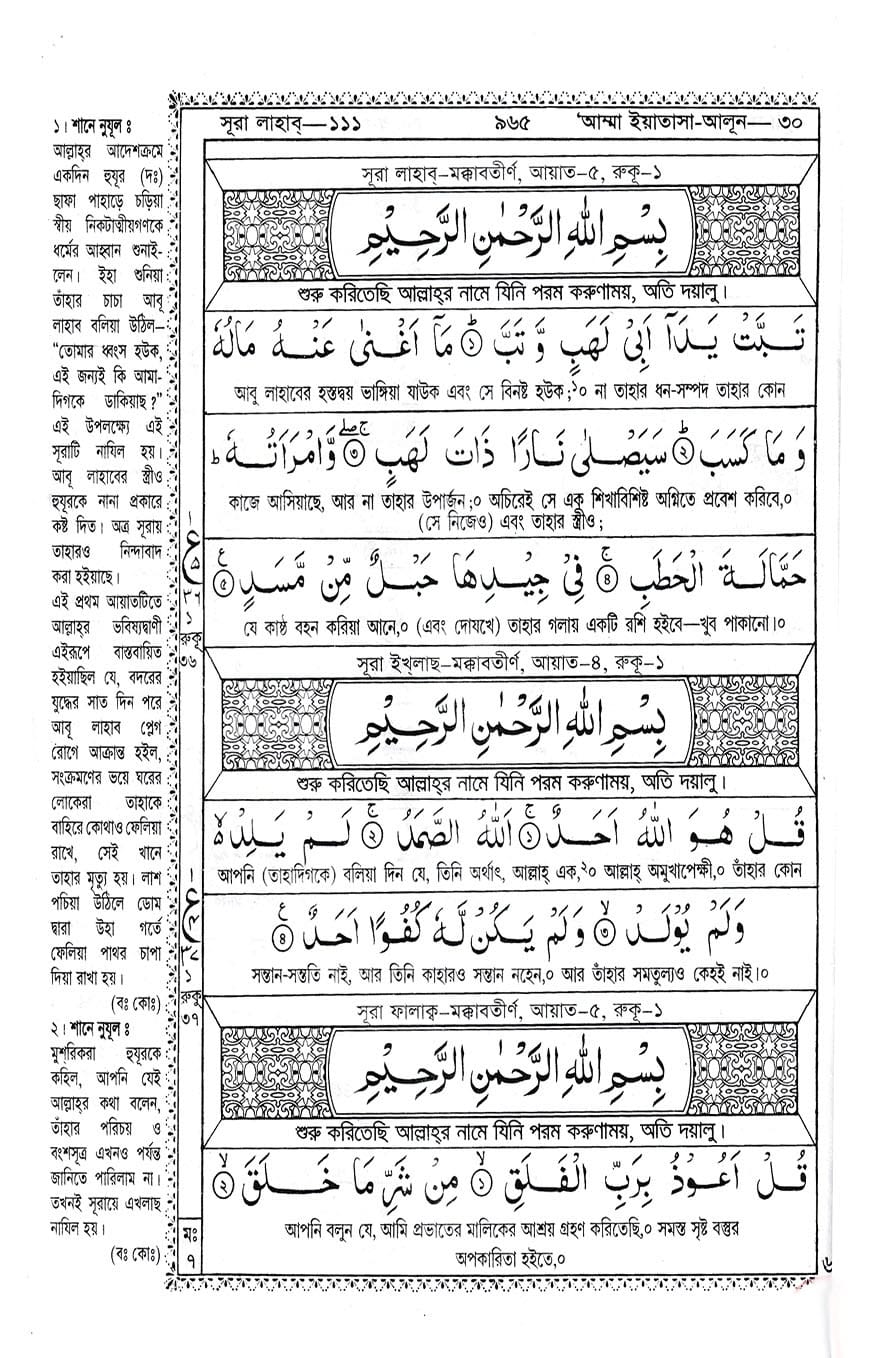 সূরা লাহাব্—১১১ ৯৬৫ ‘আম্মা ইয়াতাসা-আলূন—৩০
১। শানে নুযূল ঃ
আল্লাহ্‌র আদেশক্রমে
একদিন হুযূর (দঃ)
ছাফা পাহাড়ে চড়িয়া
স্বীয় নিকটাত্মীয়গণকে
ধর্মের আহ্বান শুনাই-
লেন। ইহা শুনিয়া
তাঁহার চাচা আবূ
লাহাব বলিয়া উঠিল–
“তোমার ধ্বংস হউক,
এই জন্যই কি আমা-
দিগকে ডাকিয়াছ?”
এই উপলক্ষ্যে এই
সূরাটি নাযিল হয়।
আবূ লাহাবের স্ত্রীও
হুযূরকে নানা প্রকারে
কষ্ট দিত। অত্র সূরায়
তাহারও নিন্দাবাদ
করা হইয়াছে।
এই প্রথম আয়াতটিতে
আল্লাহ্‌র ভবিষ্যদ্বাণী
এইরূপে বাস্তবায়িত
হইয়াছিল যে, বদরের
যুদ্ধের সাত দিন পরে
আবূ লাহাব প্লেগ
রোগে আক্রান্ত হইল,
সংক্রমণের ভয়ে ঘরের
লোকেরা তাহাকে
বাহিরে কোথাও ফেলিয়া
রাখে, সেই খানে
তাহার মৃত্যু হয়। লাশ
পচিয়া উঠিলে ডোম
দ্বারা উহা গর্তে
ফেলিয়া পাথর চাপা
দিয়া রাখা হয়।
(বঃ কোঃ)
২। শানে নুযূল ঃ
মুশরিকরা হুযূরকে
কহিল, আপনি যেই
আল্লাহ্‌র কথা বলেন,
তাঁহার পরিচয় ও
বংশসূত্র এখনও পর্যন্ত
জানিতে পারিলাম না।
তখনই সূরায়ে এখলাছ
নাযিল হয়।
(বঃ কোঃ)
ع
৫
৩৬
১
রুকূ
৩৬
ع
৪
৩৭
১
রুকূ
৩৭
মঃ
৭
সূরা লাহাব্–মক্কাবতীর্ণ, আয়াত–৫, রুকূ–১
بِسْمِ اللهِ الرَّحْمٰنِ الرَّحِيْمِ
শুরু করিতেছি আল্লাহ্‌র নামে যিনি পরম করুণাময়, অতি দয়ালু।
تَبَّتْ يَدَآ اَبِيْ لَهَبٍ وَّتَبَّ ۝১ مَآ اَغْنٰى عَنْهُ مَالُهٗ
আবূ লাহাবের হস্তদ্বয় ভাঙ্গিয়া যাউক এবং সে বিনষ্ট হউক;১০ না তাহার ধন-সম্পদ তাহার কোন
وَمَا كَسَبَ ۝২ سَيَصْلٰى نَارًا ذَاتَ لَهَبٍ ۝৩ وَّامْرَاَتُهٗ ط
কাজে আসিয়াছে, আর না তাহার উপার্জন;০ অচিরেই সে এক শিখাবিশিষ্ট অগ্নিতে প্রবেশ করিবে,০
(সে নিজেও) এবং তাহার স্ত্রীও;
حَمَّالَةَ الْحَطَبِ ۝৪ فِيْ جِيْدِهَا حَبْلٌ مِّنْ مَّسَدٍ ۝৫
যে কাষ্ঠ বহন করিয়া আনে,০ (এবং দোযখে) তাহার গলায় একটি রশি হইবে—খুব পাকানো।০
সূরা ইখ্‌লাছ–মক্কাবতীর্ণ, আয়াত–৪, রুকূ–১
بِسْمِ اللهِ الرَّحْمٰنِ الرَّحِيْمِ
শুরু করিতেছি আল্লাহ্‌র নামে যিনি পরম করুণাময়, অতি দয়ালু।
قُلْ هُوَ اللهُ اَحَدٌ ۝১ اَللهُ الصَّمَدُ ۝২ لَمْ يَلِدْ ۙ
আপনি (তাহাদিগকে) বলিয়া দিন যে, তিনি অর্থাৎ, আল্লাহ্ এক,২০ আল্লাহ্ অমুখাপেক্ষী,০ তাঁহার কোন
وَلَمْ يُوْلَدْ ۝৩ وَلَمْ يَكُنْ لَّهٗ كُفُوًا اَحَدٌ ۝৪
সন্তান-সন্ততি নাই, আর তিনি কাহারও সন্তান নহেন,০ আর তাঁহার সমতুল্যও কেহই নাই।০
সূরা ফালাক্ব–মক্কাবতীর্ণ, আয়াত–৫, রুকূ–১
بِسْمِ اللهِ الرَّحْمٰنِ الرَّحِيْمِ
শুরু করিতেছি আল্লাহ্‌র নামে যিনি পরম করুণাময়, অতি দয়ালু।
قُلْ اَعُوْذُ بِرَبِّ الْفَلَقِ ۝১ مِنْ شَرِّ مَا خَلَقَ ۝২
আপনি বলুন যে, আমি প্রভাতের মালিকের আশ্রয় গ্রহণ করিতেছি,০ সমস্ত সৃষ্ট বস্তুর
অপকারিতা হইতে,০